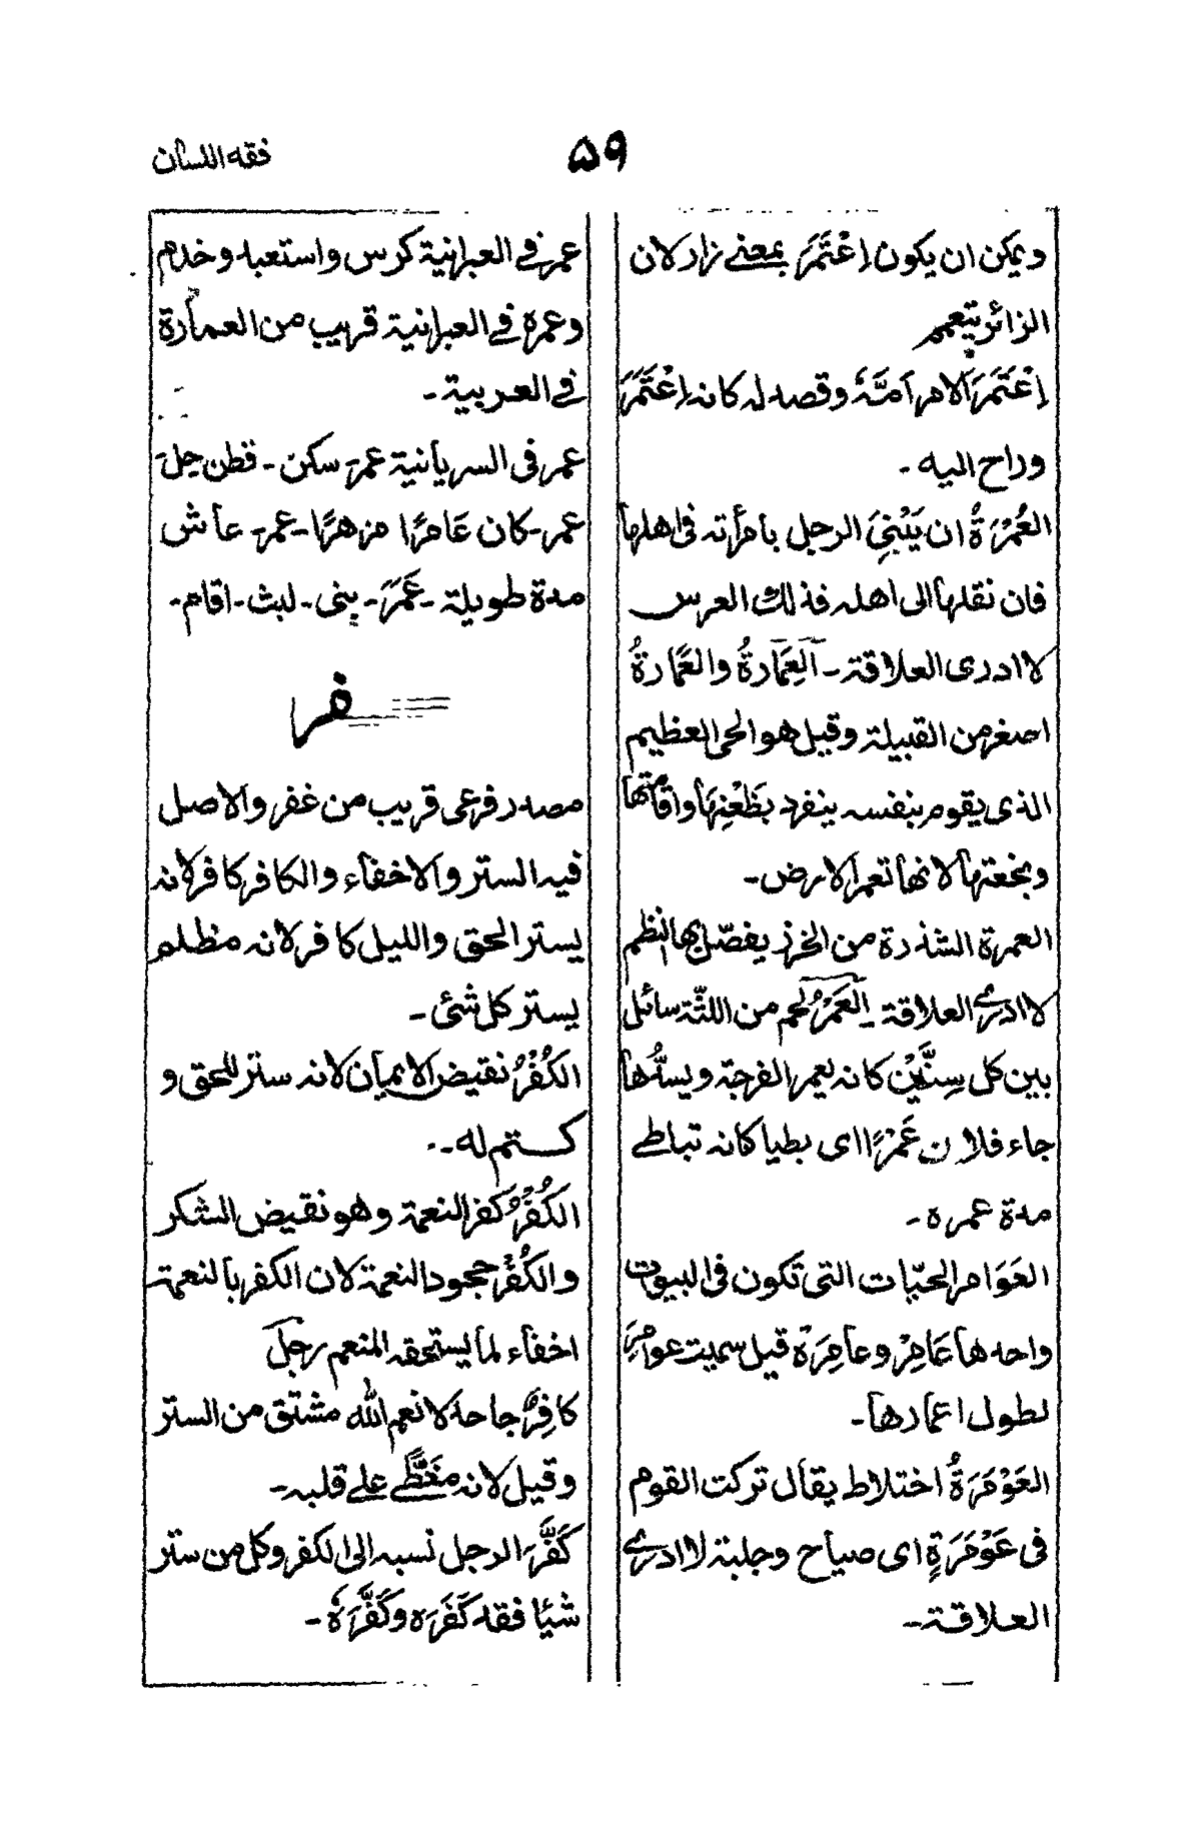 ۵۹
فقه اللسان
ويمكن ان يكون اِعْتَمَرَ بمعنے زار لان
الزائر يتعمم
اِعْتَمَرَ الامر اَمَّهٗ وقصد له كانه اِعْتَمَرَ
وراح اليه ۔
العُمْرَةُ ان يَبْنِيَ الرجل بامرأته فى اهلها
فان نقلها الى اهله فذلك العرس
لا ادرى العلاقة ۔ اَلعِمَارةُ والعَمَارةُ
اصغر من القبيلة وقيل هو الحى العظيم
الذى يقوم بنفسه ينفرد بظَعْنِهَا واقامتها
ونجعتها لانها تعمر الارض۔
العمرة الشذرة من الخرز يفصّل بها النظم
لا ادرے العلاقة ۔ اَلعَمْرُ لحم من اللثّة سائل
بين كل سِنَّيْن كانه يعمر الفرجة ويسدُّها
جاء فلان عَمْرًا اى بطيا كانه تباطے
مدة عمره ۔
العَوَامر الحيّات التى تكون فى البيوت
واحدها عَامِرْ وعامِرَة قيل سميت عوامِرَ
لطول اعمارها۔
العَوْمَرَةُ اختلاط يقال تركت القوم
فى عَوْمَرَةٍ اى صياح وجلبة لا ادرے
العلاقة ۔
عمر فے العبرانية كرس واستعبد وخدم
وعمره فے العبرانية قريب من العمارة
فے العربية ۔
عمر فى السريانية عمرَ سكن ۔ قطن حلّ
عمر ۔ كان عَامرًا مزهرًا ۔ عمرَ عاش
مدة طويلة ۔ عَمَّرَ ۔ بنى ۔ لبث ۔ اقام ۔
فر
مصدر فرعى قريب من غفر والاصل
فيه الستر والاخفاء والكافر كافر لانه
يستر الحق والليل كافر لانه مظلم
يستر كل شئ ۔
الكُفْرُ نقيض الايمان لانه ستر للحق و
كتم له ۔
الكُفْرُ كفر النعمة وهو نقيض الشكر
والكُفْر جحود النعمة لان الكفر بالنعمة
اخفاء لما يستحقه المنعم رجل
كافِرٌ جاحد لانعم الله مشتق من الستر
وقيل لانه مغَطًّے علے قلبه ۔
كَفَّرَ الرجل نسبه الى الكفر وكل من ستر
شيًا فقد كَفَرَه وكَفَّرَهٗ ۔